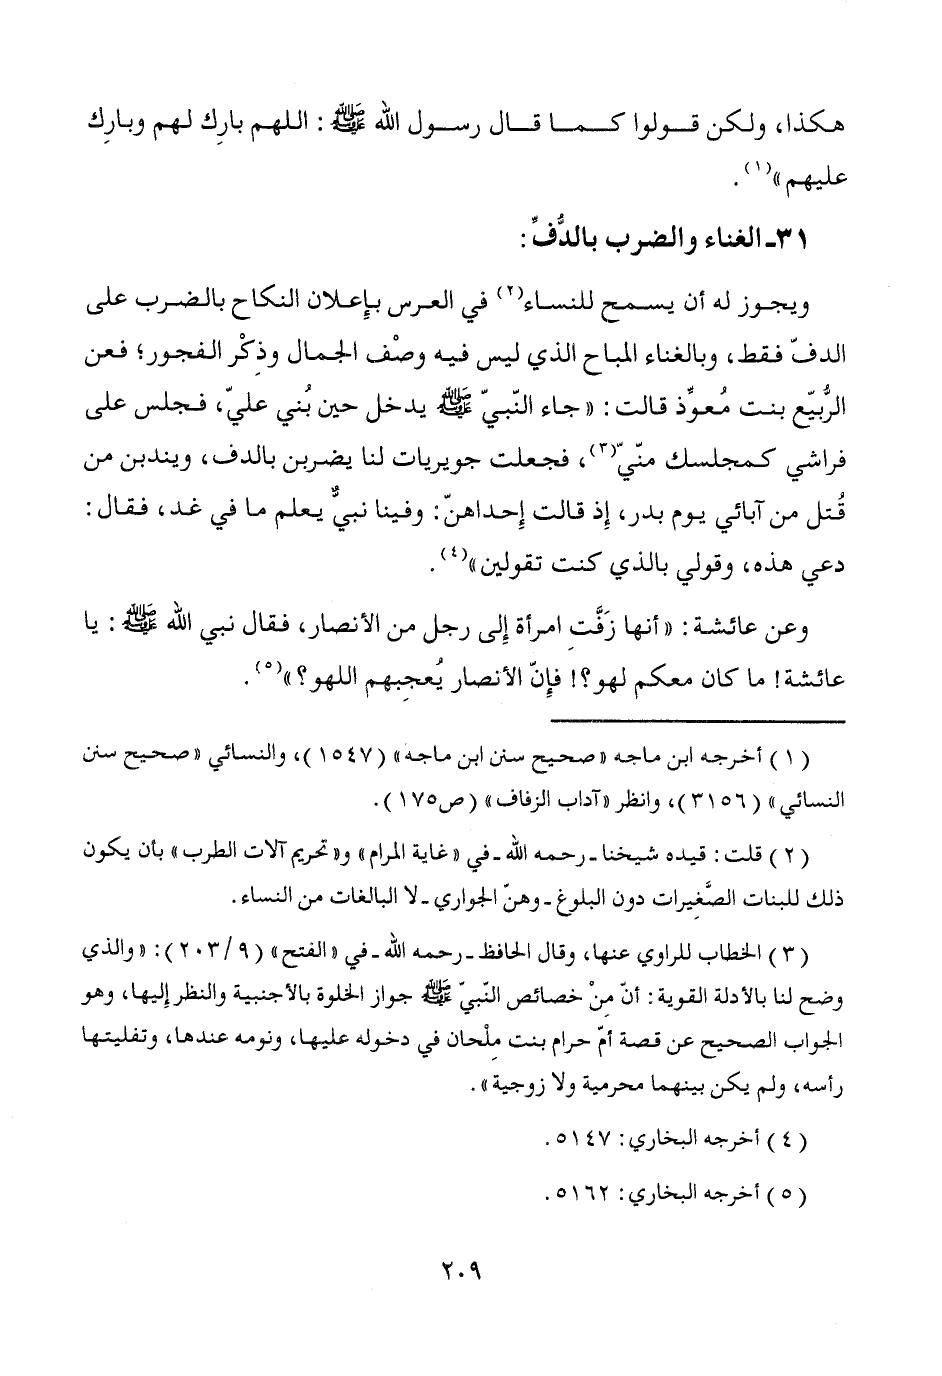 هكذا، ولكن قولوا كما قال رسول الله ﷺ : اللهم بارِك لهم وبارِك
عليهم»(١).
٣١ـ الغناء والضرب بالدُّفِّ:
ويجوز له أن يسمح للنساء(٢) في العرس بإعلان النكاح بالضرب على
الدفّ فقط، وبالغناء المباح الذي ليس فيه وصْف الجمال وذِكْر الفجور؛ فعن
الرُّبيّع بنت مُعوِّذ قالت: «جاء النّبيّ ﷺ يدخل حين بُني عليّ، فجلس على
فراشي كمجلسك منّيّ(٣)، فجعلت جويريات لنا يضربن بالدف، ويندبن من
قُتل من آبائي يوم بدر، إِذ قالت إِحداهنّ: وفينا نبيٌّ يعلم ما في غد، فقال:
دعي هذه، وقولي بالذي كنت تقولين»(٤).
وعن عائشة: «أنها زَفَّتِ امرأة إِلى رجل من الأنصار، فقال نبي الله ﷺ : يا
عائشة! ما كان معكم لهو؟! فإِنّ الأنصار يُعجبهم اللهو؟»(٥).
(١) أخرجه ابن ماجه «صحيح سنن ابن ماجه» (١٥٤٧)، والنسائي «صحيح سنن
النسائي» (٣١٥٦)، وانظر «آداب الزفاف» (ص١٧٥).
(٢) قلت: قيده شيخنا ـ رحمه الله ـ في «غاية المرام» و«تحريم آلات الطرب» بأن يكون
ذلك للبنات الصَّغيرات دون البلوغ ـ وهنّ الجواري ـ لا البالغات من النساء.
(٣) الخطاب للراوي عنها، وقال الحافظ ـ رحمه الله ـ في «الفتح» (٩/ ٢٠٣): «والذي
وضح لنا بالأدلة القوية: أنّ مِنْ خصائص النّبيّ ﷺ جواز الخلوة بالأجنبية والنظر إِليها، وهو
الجواب الصحيح عن قصة أمّ حرام بنت مِلْحان في دخوله عليها، ونومه عندها، وتفليتها
رأسه، ولم يكن بينهما محرمية ولا زوجية».
(٤) أخرجه البخاري: ٥١٤٧.
(٥) أخرجه البخاري: ٥١٦٢.
٢٠٩